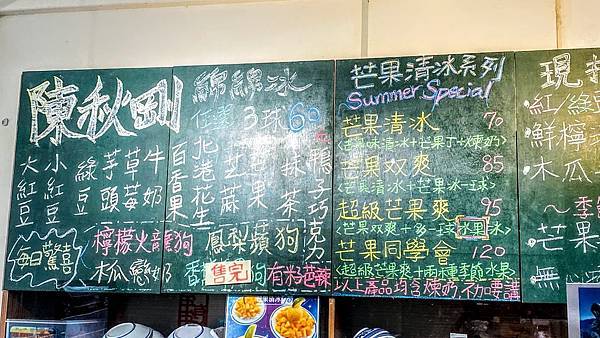 陳秋剛
大紅豆
小紅豆
綠豆
芋頭
草莓
牛奶
每日驚喜
檸檬火龍狗
木瓜戀奶
綿綿冰
任選3球60元
百香果
北港花生
芝麻
芒果
抹茶
鴨子巧克力
鳳梨蘋狗
售完
狗
有籽芭辣
芒果清冰系列
Summer Special
芒果清冰 70
<芒果味清冰+芒果丁+煉奶>
芒果双爽 85
<芒果清冰+芒果冰一球>
超級芒果爽 95
<芒果双爽+多一球水果冰>
芒果同學會 120
<超級芒果爽+兩種季節水果>
以上產品均含煉奶,不加要講
現
紅/綠豆
鮮檸檬
木瓜
~季節
芒果
無